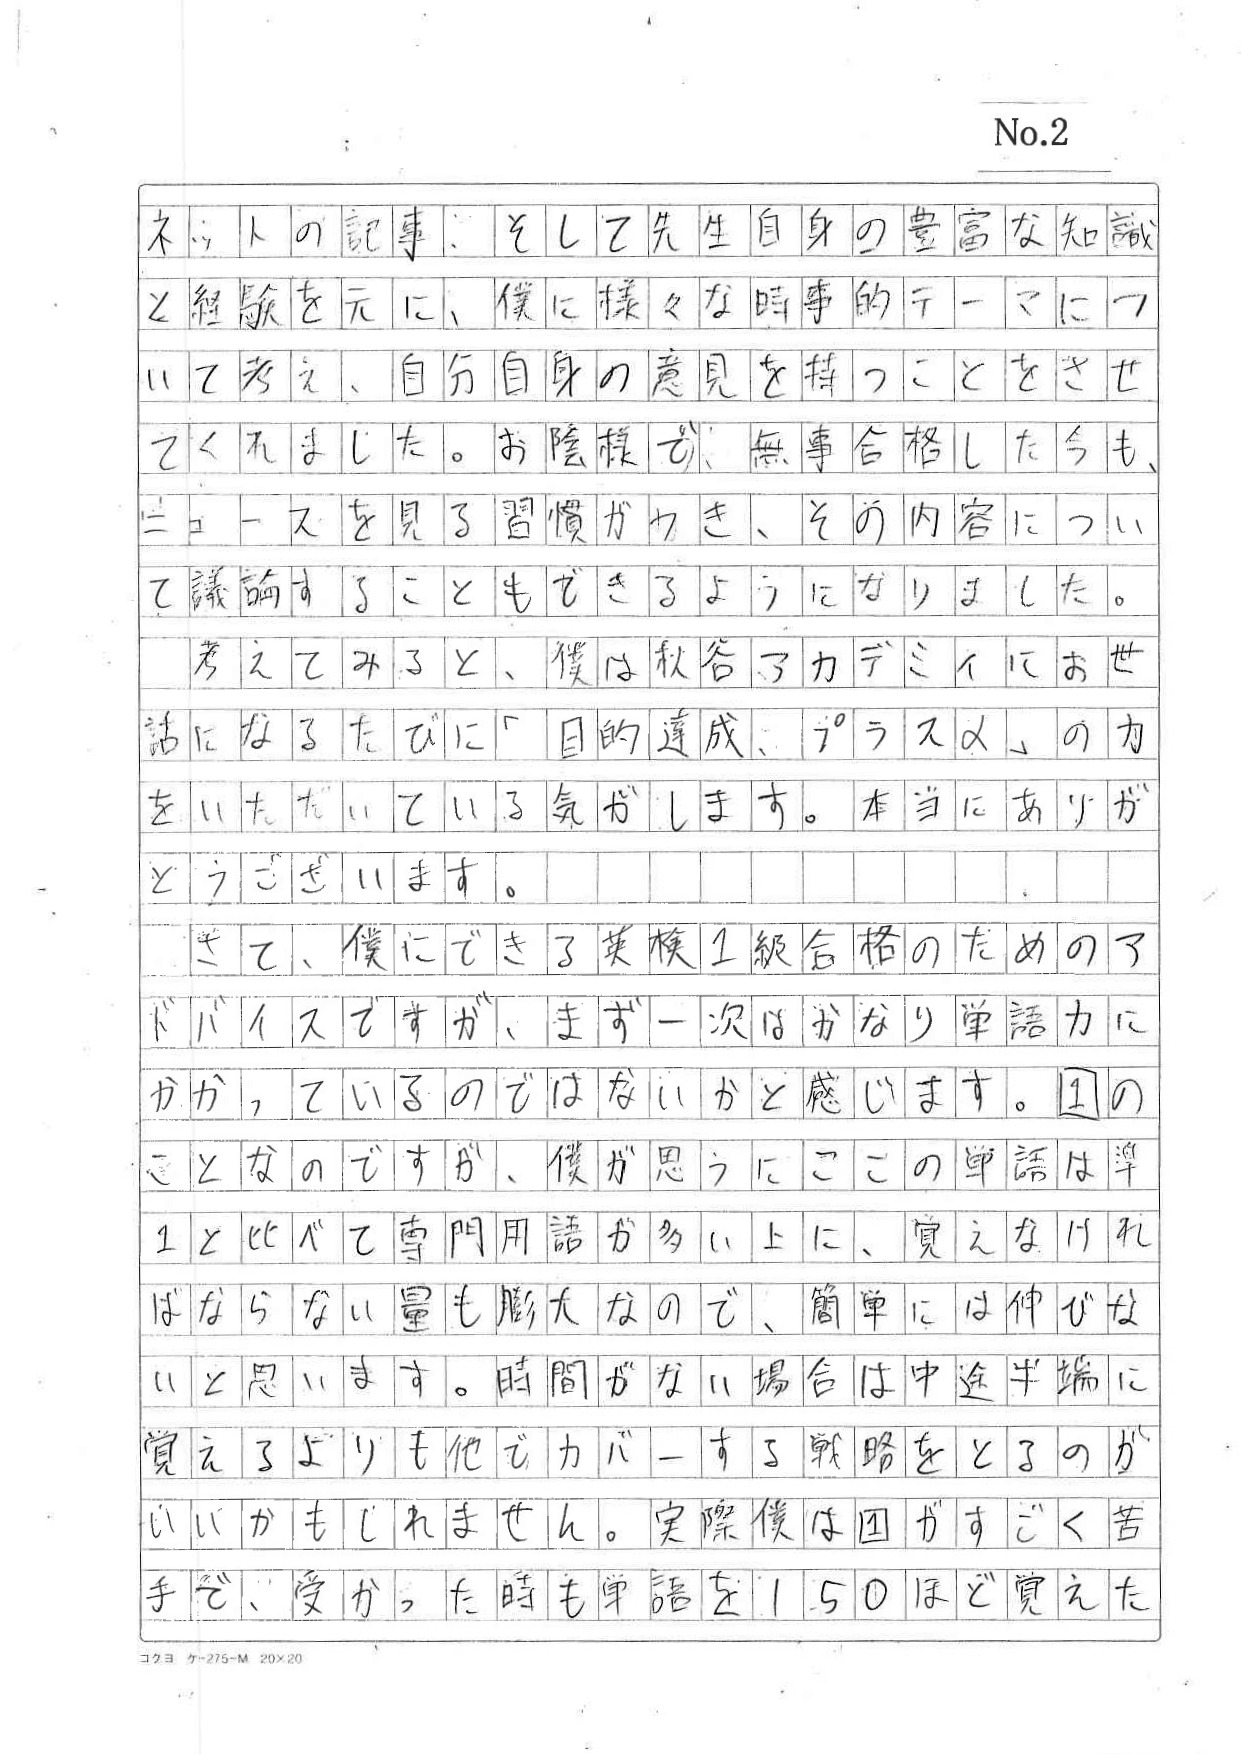 No.2
ネットの記事、そして先生自身の豊富な知識
と経験を元に、僕に様々な時事的テーマにつ
いて考え、自分自身の意見を持つことをさせ
てくれました。お陰様で、無事合格した今も、
ニュースを見る習慣がつき、その内容につい
て議論することもできるようになりました。
考えてみると、僕は秋谷アカデミイにお世
話になるたびに「目的達成、プラスα」の力
をいただいている気がします。本当にありが
とうございます。
さて、僕にできる英検1級合格のためのア
ドバイスですが、まず一次はかなり単語力に
かかっているのではないかと感じます。1の
ことなのですが、僕が思うにここの単語は準
1と比べて専門用語が多い上に、覚えなけれ
ばならない量も膨大なので、簡単には伸びな
いと思います。時間がない場合は中途半端に
覚えるよりも他でカバーする戦略をとるのが
いいかもしれません。実際僕は1がすごく苦
手で、受かった時も単語を150ほど覚えた
コクヨ ケ-275-M 20×20